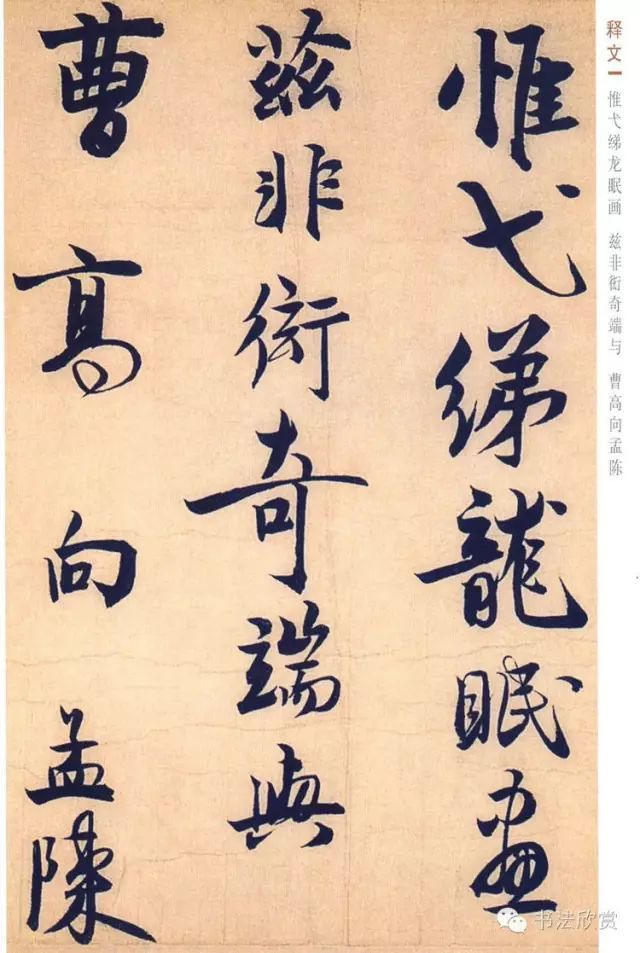 释文一
惟弋绨龙眠画 兹非衒奇端与 曹高向孟陈
惟弋綈龍眠畫
茲非衒奇端與
曹高向孟陳
书法欣赏